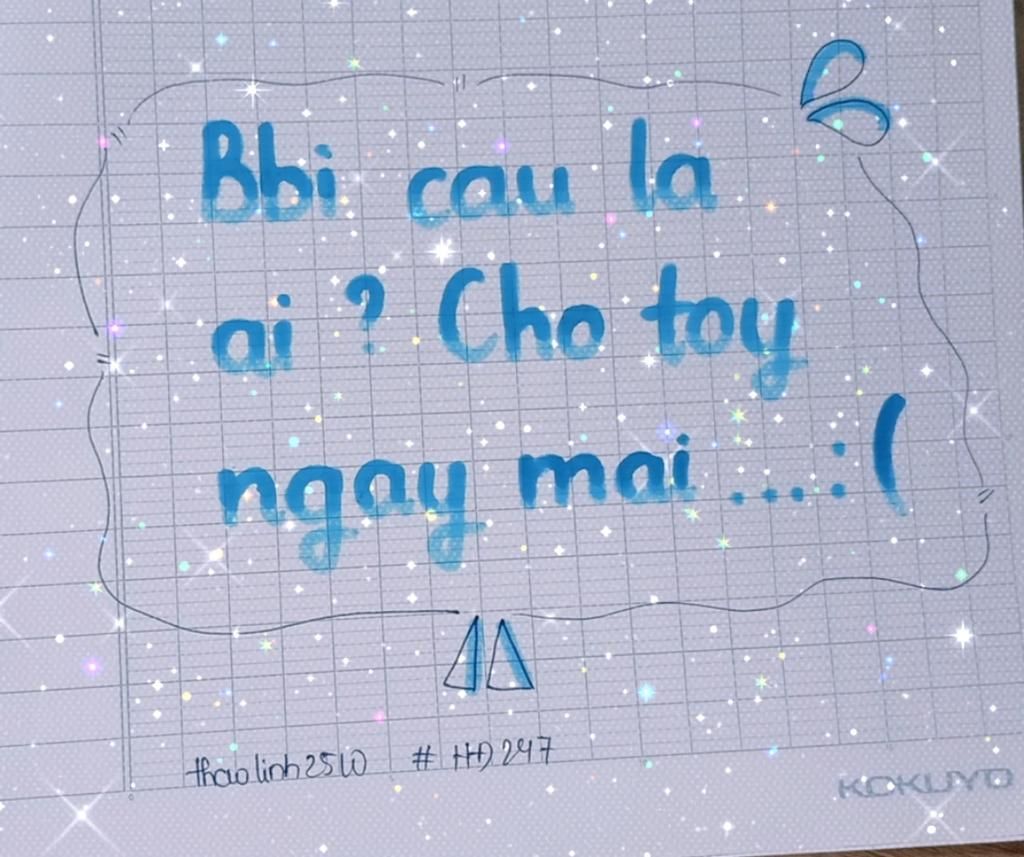 Bbi cau la
ai ? Cho toy
ngay mai ....:(
thaolinh2510 # HĐ247
KOKUYO